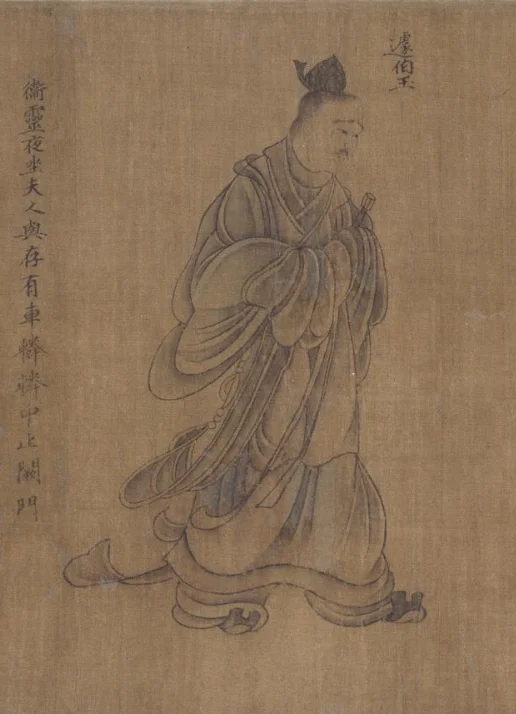 遽伯玉
衛靈夜坐夫人與存有車轔轔中止闕門